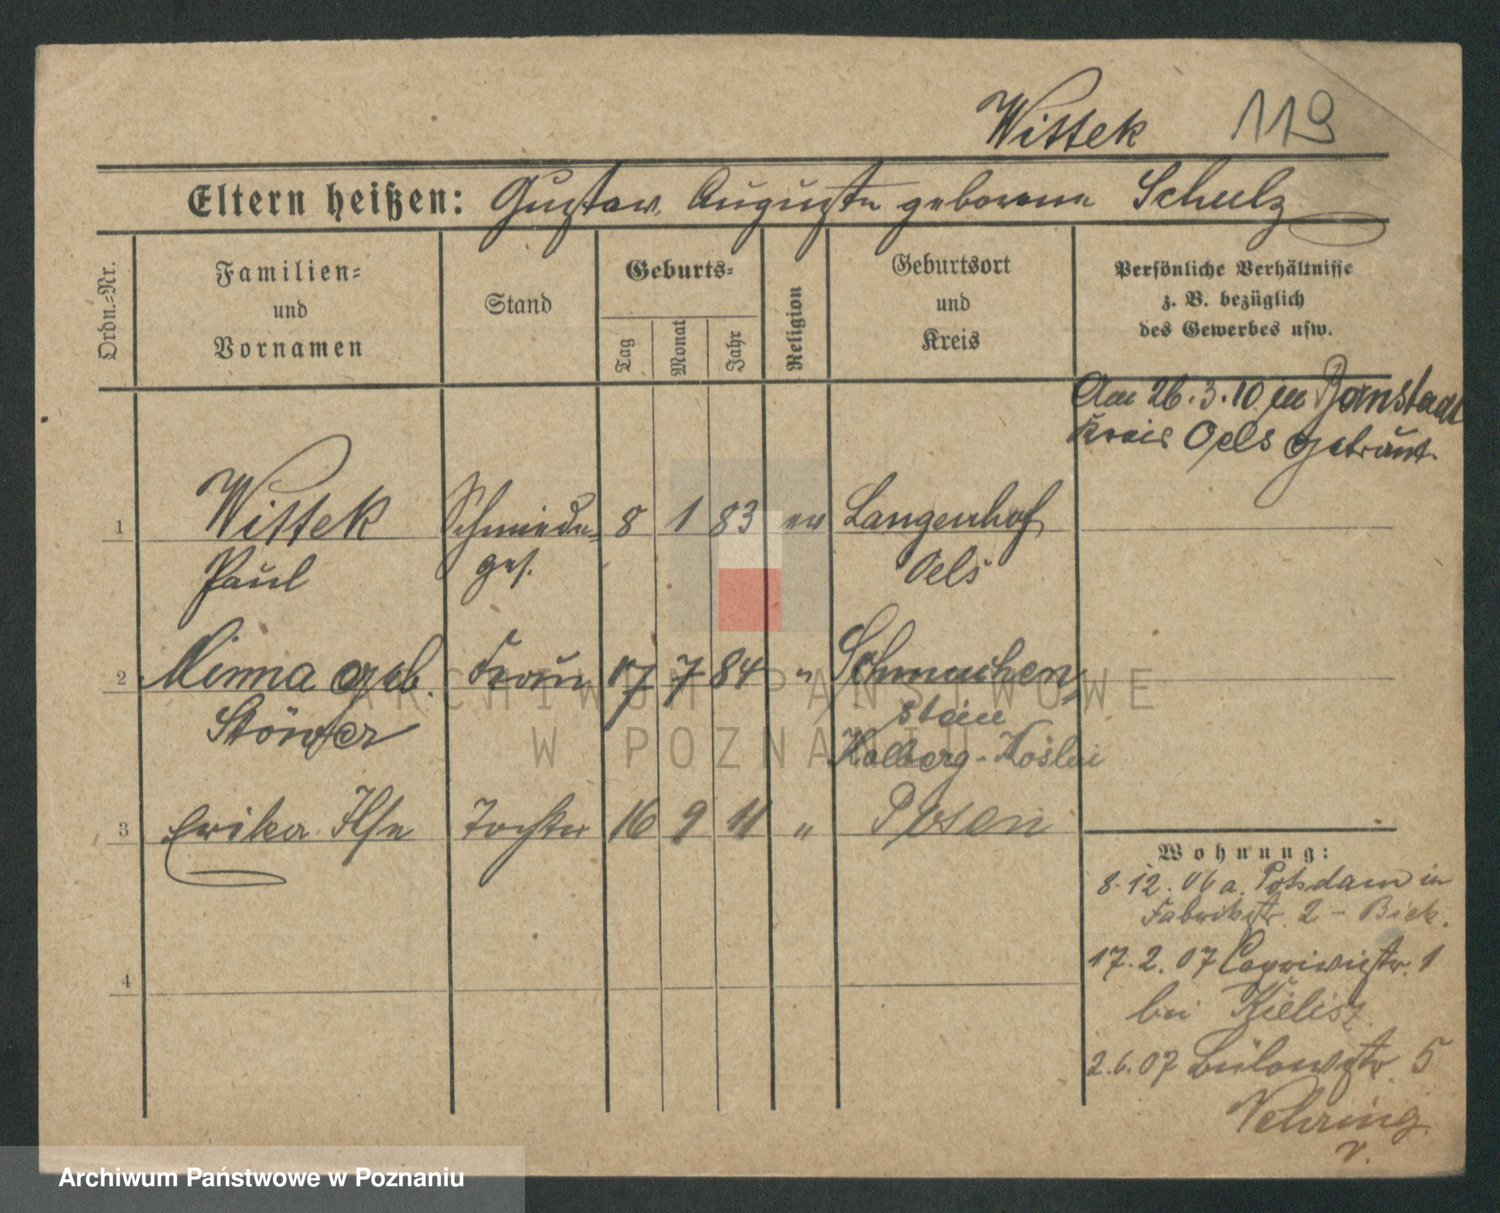 Wittek 119
Eltern heißen: Gustav, Auguste geborene Schulz
Ordn.-Nr.
Familien-
und
Vornamen
Stand
Geburts-
Tag
Monat
Jahr
Religion
Geburtsort
und
Kreis
Persönliche Verhältnisse
z. B. bezüglich
des Gewerbes usw.
Am 26.3.10 in
Kreis Oels getraut.
1 Wittek Schmiede- 8 1 83 ev Langenhof
Paul ges. Oels
2 Minna geb. Frau 17 7 84 "
Stöwer
3 Erika Ilse Tochter 16 9 11 " Posen
4
Wohnung:
8.12.06 a. Potsdam in
Fabrikstr. 2 -
17.2.07 Caprivistr. 1
bei
2.6.07 Bülowstr. 5
Nehring
v.
ARCHIWUM PAŃSTWOWE
W POZNANIU
Archiwum Państwowe w Poznaniu